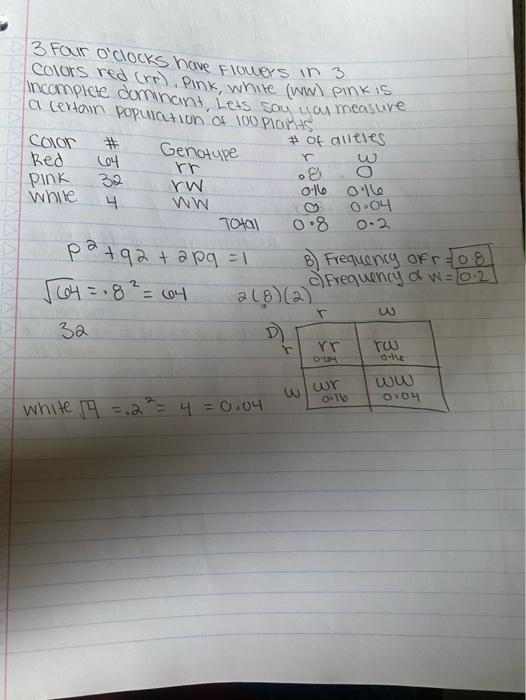 3 Four o'clocks have Flowers in 3
colors red (rr), Pink, white (ww) pink is
incomplete dominant, Lets say you measure
a certain population of 100 plants
Color # Genotype # of alleles
r w
Red 64 rr .8 0
pink 32 rw 0.16 0.16
white 4 ww 0 0.04
Total 0.8 0.2
p²+q2+2pq=1
B) Frequency of r = 0.8
C) Frequency of w = 0.2
√64 = .8² = 64 2(8)(2)
32
D) r w
r rr 0.64 rw 0.16
w wr 0.16 ww 0.04
white √4 = .2² = 4 = 0.04